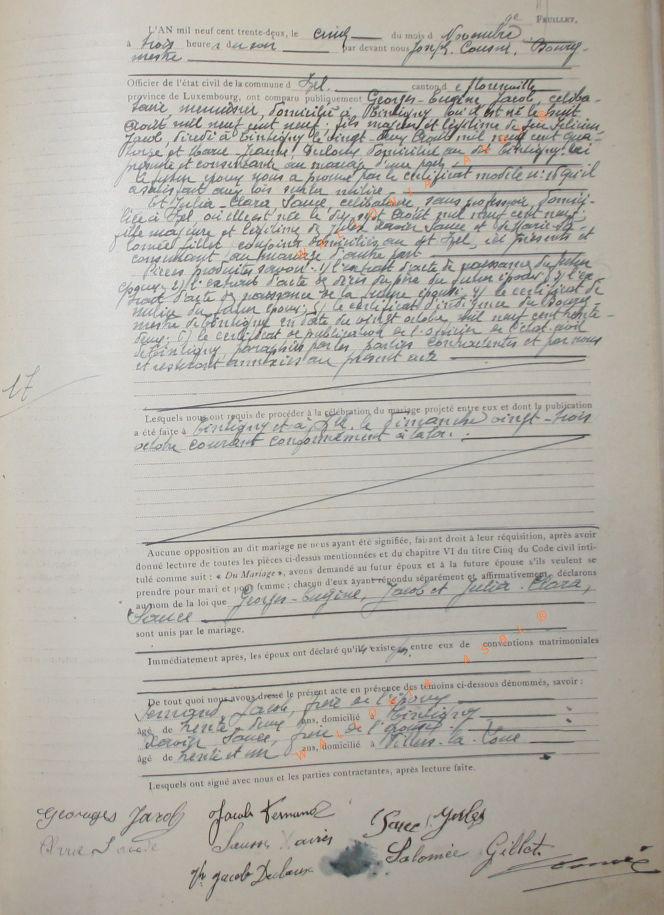 9e FEUILLET.
L'AN mil neuf cent trente-deux, le cinq du mois d Novembre
à trois heures du soir par devant nous Joseph Bourg-
mestre
Officier de l'état civil de la commune d Izel canton d e Florenville
province de Luxembourg, ont comparu publiquement Georges-Eugène Jacob, céliba-
taire menuisier, domicilié à Tintigny où il est né le huit
Août mil neuf cent neuf, fils majeur et légitime de feu
Jacob, décédé à Tintigny le vingt-deux Août mil neuf cent qua-
torze et Marie Dulaux domiciliée au dit Tintigny ici
présente et consentante au mariage d'une part
Le futur époux nous a prouvé par le certificat modèle n: 18 qu'il
a satisfait aux lois sur la milice
Et Julia-Clara Sauce célibataire, sans profession, domici-
liée à Izel, où elle est née le dix sept Août mil neuf cent neuf,
fille majeure et légitime de Jules Xavier Sauce et de Marie Sa-
lomée Gillet conjoints domiciliés au dit Izel, ici présents et
consentant au mariage d'autre part
Pièces produites savoir: 1) l'extrait d'acte de naissance du futur
époux; 2) l'extrait d'acte de décès du père du futur époux; 3) l'ex-
trait d'acte de naissance de la future épouse; 4) le certificat de
milice du futur époux; 5) le certificat d'indigence du Bourg-
mestre de Tintigny en date du vingt octobre mil neuf cent trente-
deux; 6) le certificat de publication de l'officier de l'état-civil
de Tintigny, paraphés par les parties contractantes et par nous
et resteront annexées au présent acte
17
Lesquels nous ont requis de procéder à la célébration du mariage projeté entre eux et dont la publication
a été faite à Tintigny et à Izel le dimanche vingt-trois
octobre courant conformément à la loi.
Aucune opposition au dit mariage ne nous ayant été signifiée, faisant droit à leur réquisition, après avoir
donné lecture de toutes les pièces ci-dessus mentionnées et du chapitre VI du titre Cinq du Code civil inti-
tulé comme suit : « Du Mariage », avons demandé au futur époux et à la future épouse s'ils veulent se
prendre pour mari et pour femme ; chacun d'eux ayant répondu séparément et affirmativement, déclarons
au nom de la loi que Georges-Eugène, Jacob et Julia Clara,
Sauce
sont unis par le mariage.
Immédiatement après, les époux ont déclaré qu'il existe entre eux de conventions matrimoniales
De tout quoi nous avons dressé le présent acte en présence des témoins ci-dessous dénommés, savoir :
Fernand, Jacob, frère de l'époux
âgé de trente deux ans, domicilié à Tintigny
Xavier Sauce, frère de l'épouse
âgé de trente et un ans, domicilié à Villers-la-Loue
Lesquels ont signé avec nous et les parties contractantes, après lecture faite.
Georges Jacob Jacob Fernand Sauce Jules
Sauce Xavier Salomée Gillet
Vve Jacob Dulaux